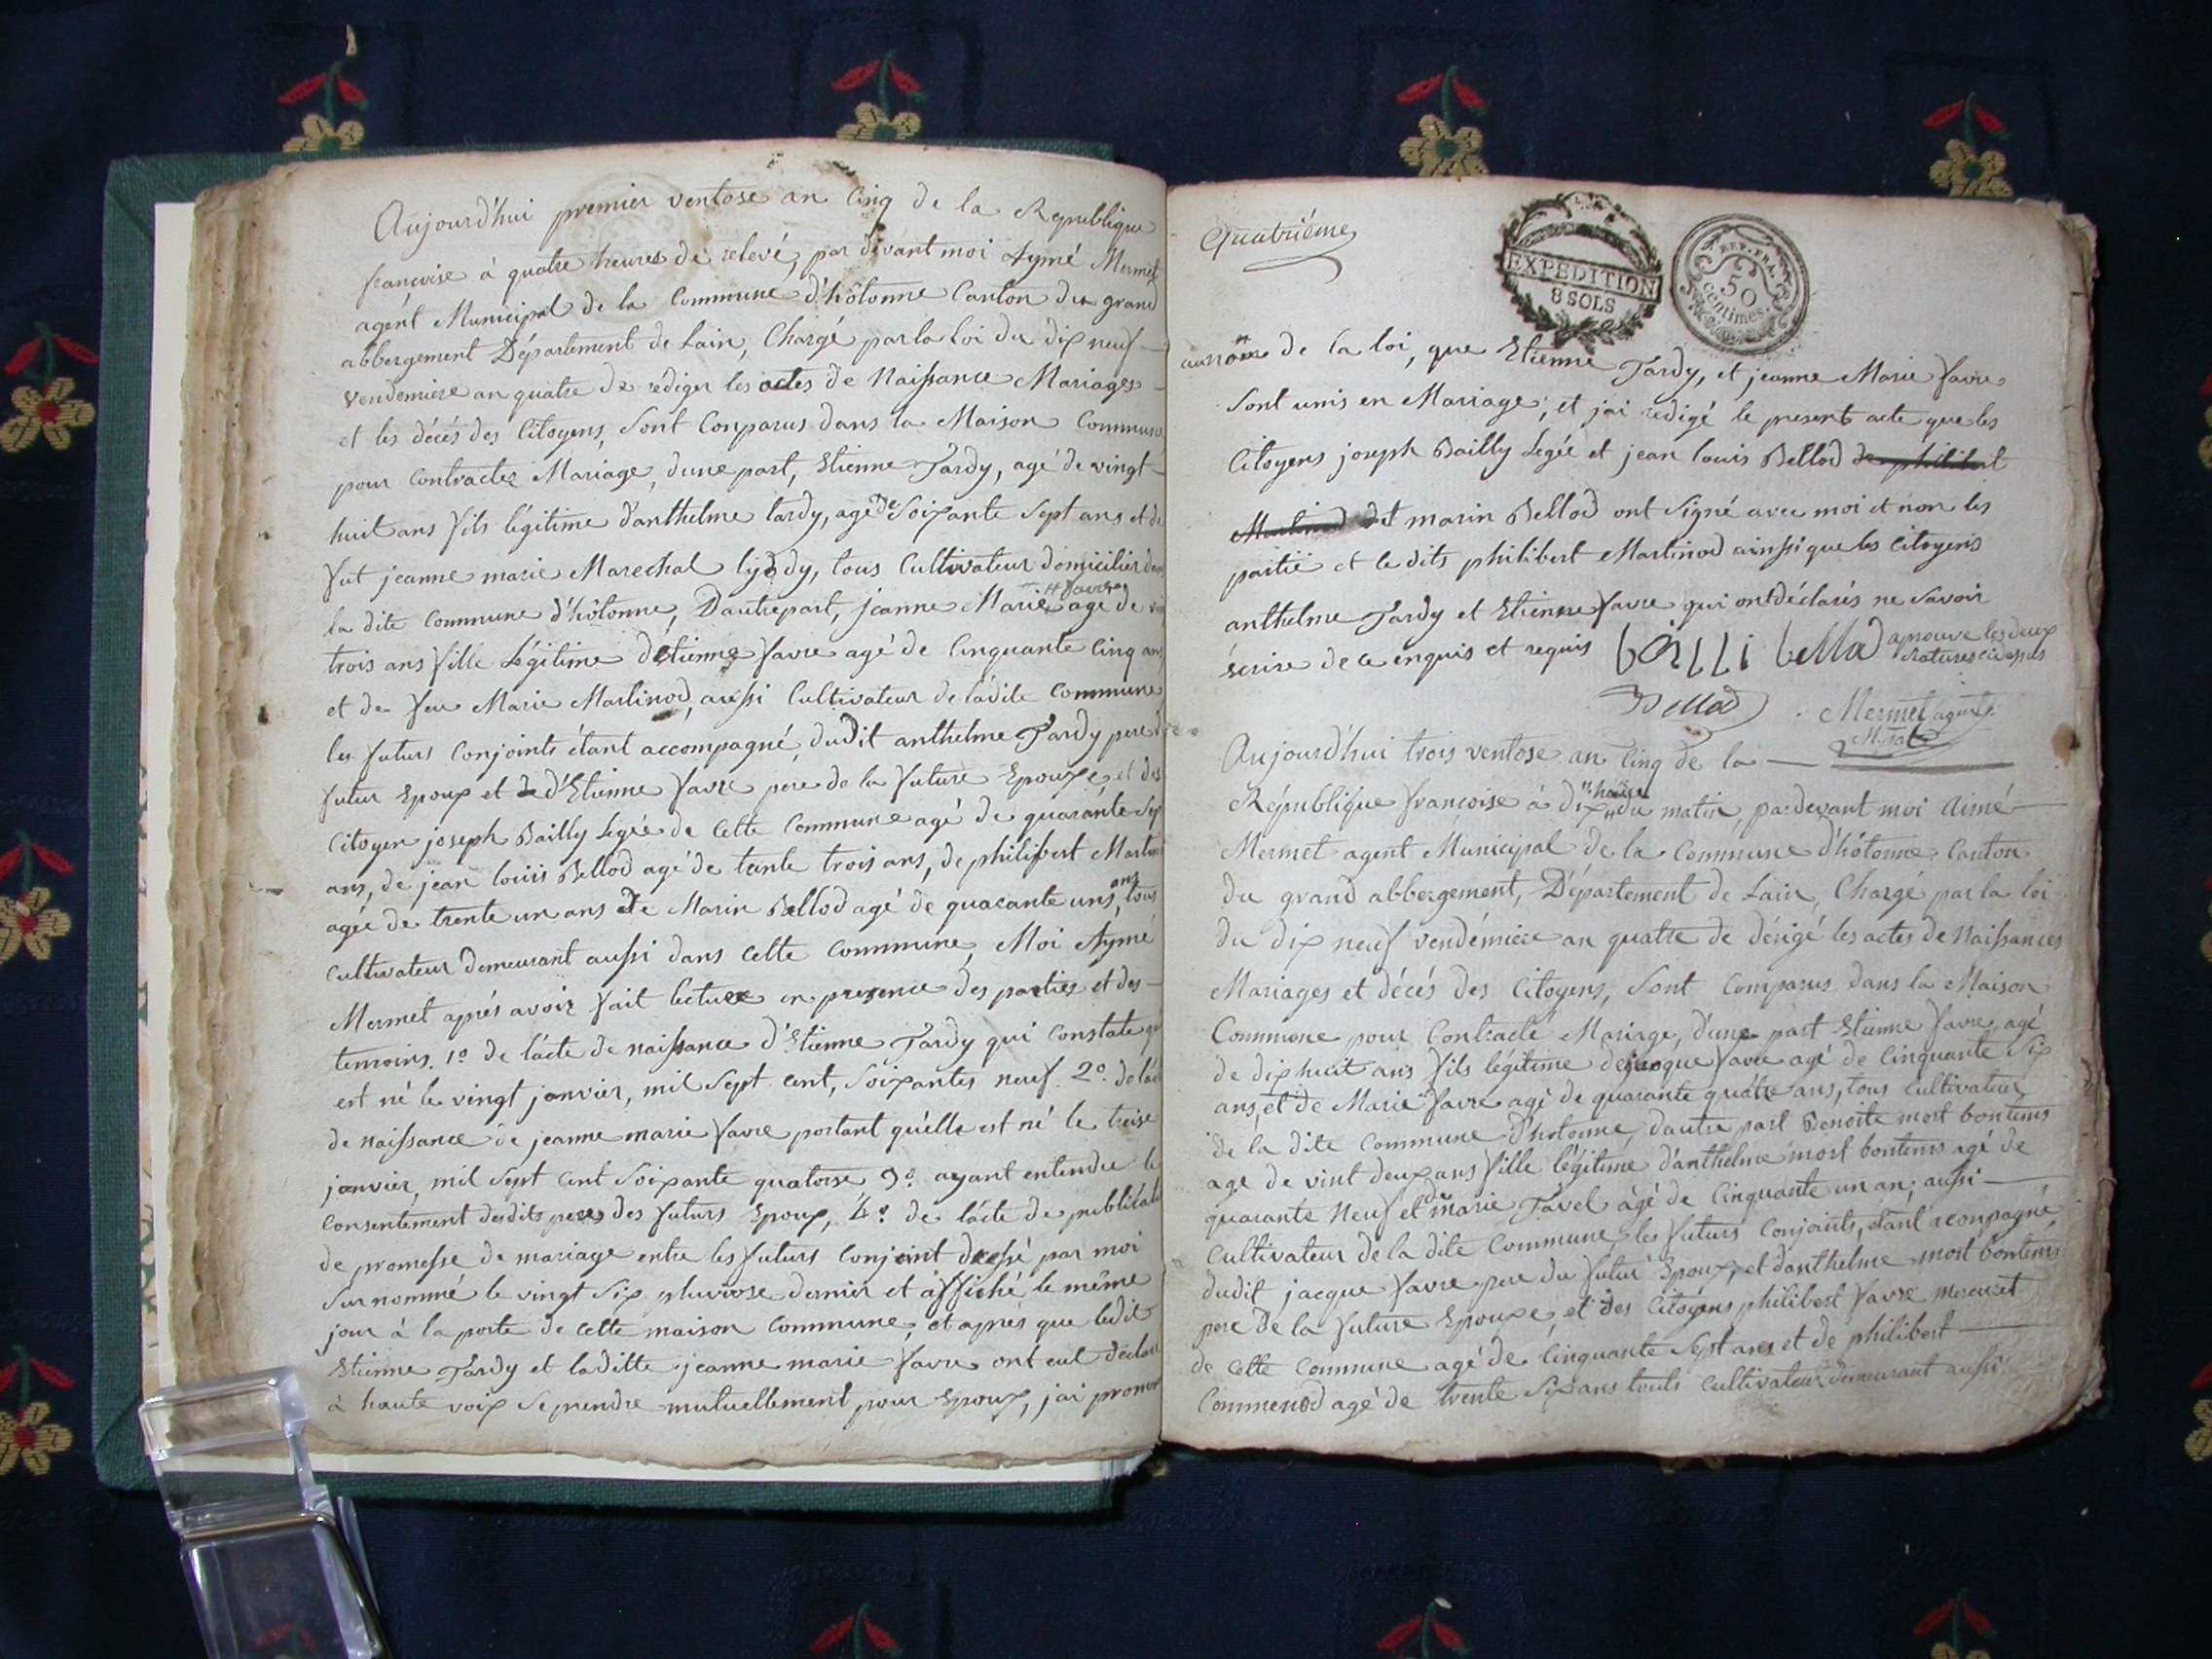 Aujourd'hui premier ventose an Cinq de la Republique
françoise à quatre heures de relevé, par devant moi Aymé Mermet
agent Municipal de la Commune d'hôtonne Canton du grand
abbergement Département de Lain, Chargé par la loi du dix neuf
vendemiere an quatre de rediger les actes de Naissance Mariages
et les décés des Citoyens, Sont Conparus dans la Maison Commune
pour Contracter Mariage, dune part, Etienne Tardy, agé de vingt
huit ans fils légitime d'anthelme tardy, agé de Soixante Sept ans et de
fut jeanne marie Marechal tous Cultivateur domicilier
la dite Commune d'hôtonne, Dautrepart, jeanne Marie favre agé de
trois ans fille Légitime d'Etienne favre agé de Cinquante Cinq ans
et de feu Marie Martinod, aussi Cultivateur de ladite Commune
les futurs Conjoints étant accompagné, dudit anthelme Tardy pere
futur Epoux et de d'Etienne favre pere de la future Epouxe, et des
Citoyen joseph Bailly Legée de Cette Commune agé de quarante
ans, de jean louis Bellod agé de tente trois ans, de philibert
agée de trente un ans et de Marin Bellod agé de quarante uns, ans tous
Cultivateur Demeurant aussi dans Cette Commune, Moi Aymé
Mermet aprés avoir fait lecture en presence des parties et des
temoins. 1º de l'acte de naissance d'Etienne Tardy qui Constate
est né le vingt janvier, mil Sept Cent, Soixantes neuf. 2º
de naissance de jeanne marie favre portant qu'elle est né le treise
janvier, mil Sept Cent Soixante quatorse 3º ayant entendue le
Consentement desdits peres des futurs Epoux, 4º de l'acte de
de promesse de mariage entre les futurs Conjoint dressé par moi
Surnommé le vingt Six pluviose dernier et affiché le même
jour à la porte de cette maison Commune, et aprés que ledit
Etienne Tardy et laditte jeanne marie favre ont eut
à haute voix Se prendre mutuellement pour Epoux, jai
Quatriéme
EXPEDITION
8 SOLS
REP. FRA.
50
centimes.
au nom de la loi, que Etienne Tardy, et jeanne Marie favre
Sont unis en Mariage, et jai redigé le present acte que les
Citoyens joseph Bailly Legée et jean louis Bellod de philibert
Martinod et marin Bellod ont Signé avec moi et non les
partie et le dits philibert Martinod ainsi que les Citoyens
anthelme Tardy et Etienne favre qui ont déclarés ne Savoir
écrire de ce enquis et requis bailli bellod aprouve les deux
ratures
Bellod Mermet agent
Aujourd'hui trois ventose an Cinq de la
République françoise à dix heure du matin, par devant moi Aimé
Mermet agent Municipal de la Commune d'hôtonne Canton
du grand abbergement, Département de Lain, Chargé par la loi
du dix neuf vendémiere an quatre de dérigé les actes de Naissances
Mariages et décés des Citoyens, Sont Comparus dans la Maison
Commune pour Contracté Mariage, d'une part Etienne favre, agé
de dix huit ans fils légitime de jacque favre agé de Cinquante Six
ans, et de Marie favre agé de quarante quatre ans, tous Cultivateur
de la dite Commune d'hotonne, dautre part Benoite mort bontems
age de vint deux ans fille légitime d'anthelme mort bontems agé de
quarante Neuf et de marie Tavel agé de Cinquante un an, aussi
Cultivateur de la dite Commune, les futurs Conjoints, étant aconpagné,
dudit jacque favre pere du futur Epoux, et d'anthelme mort bontems
pere de la future Epouxe, et des Citoyens philibert favre
de Cette Commune agé de Cinquante Sept ans et de philibert
Commenod agé de trente Six ans touts Cultivateur demeurant aussi